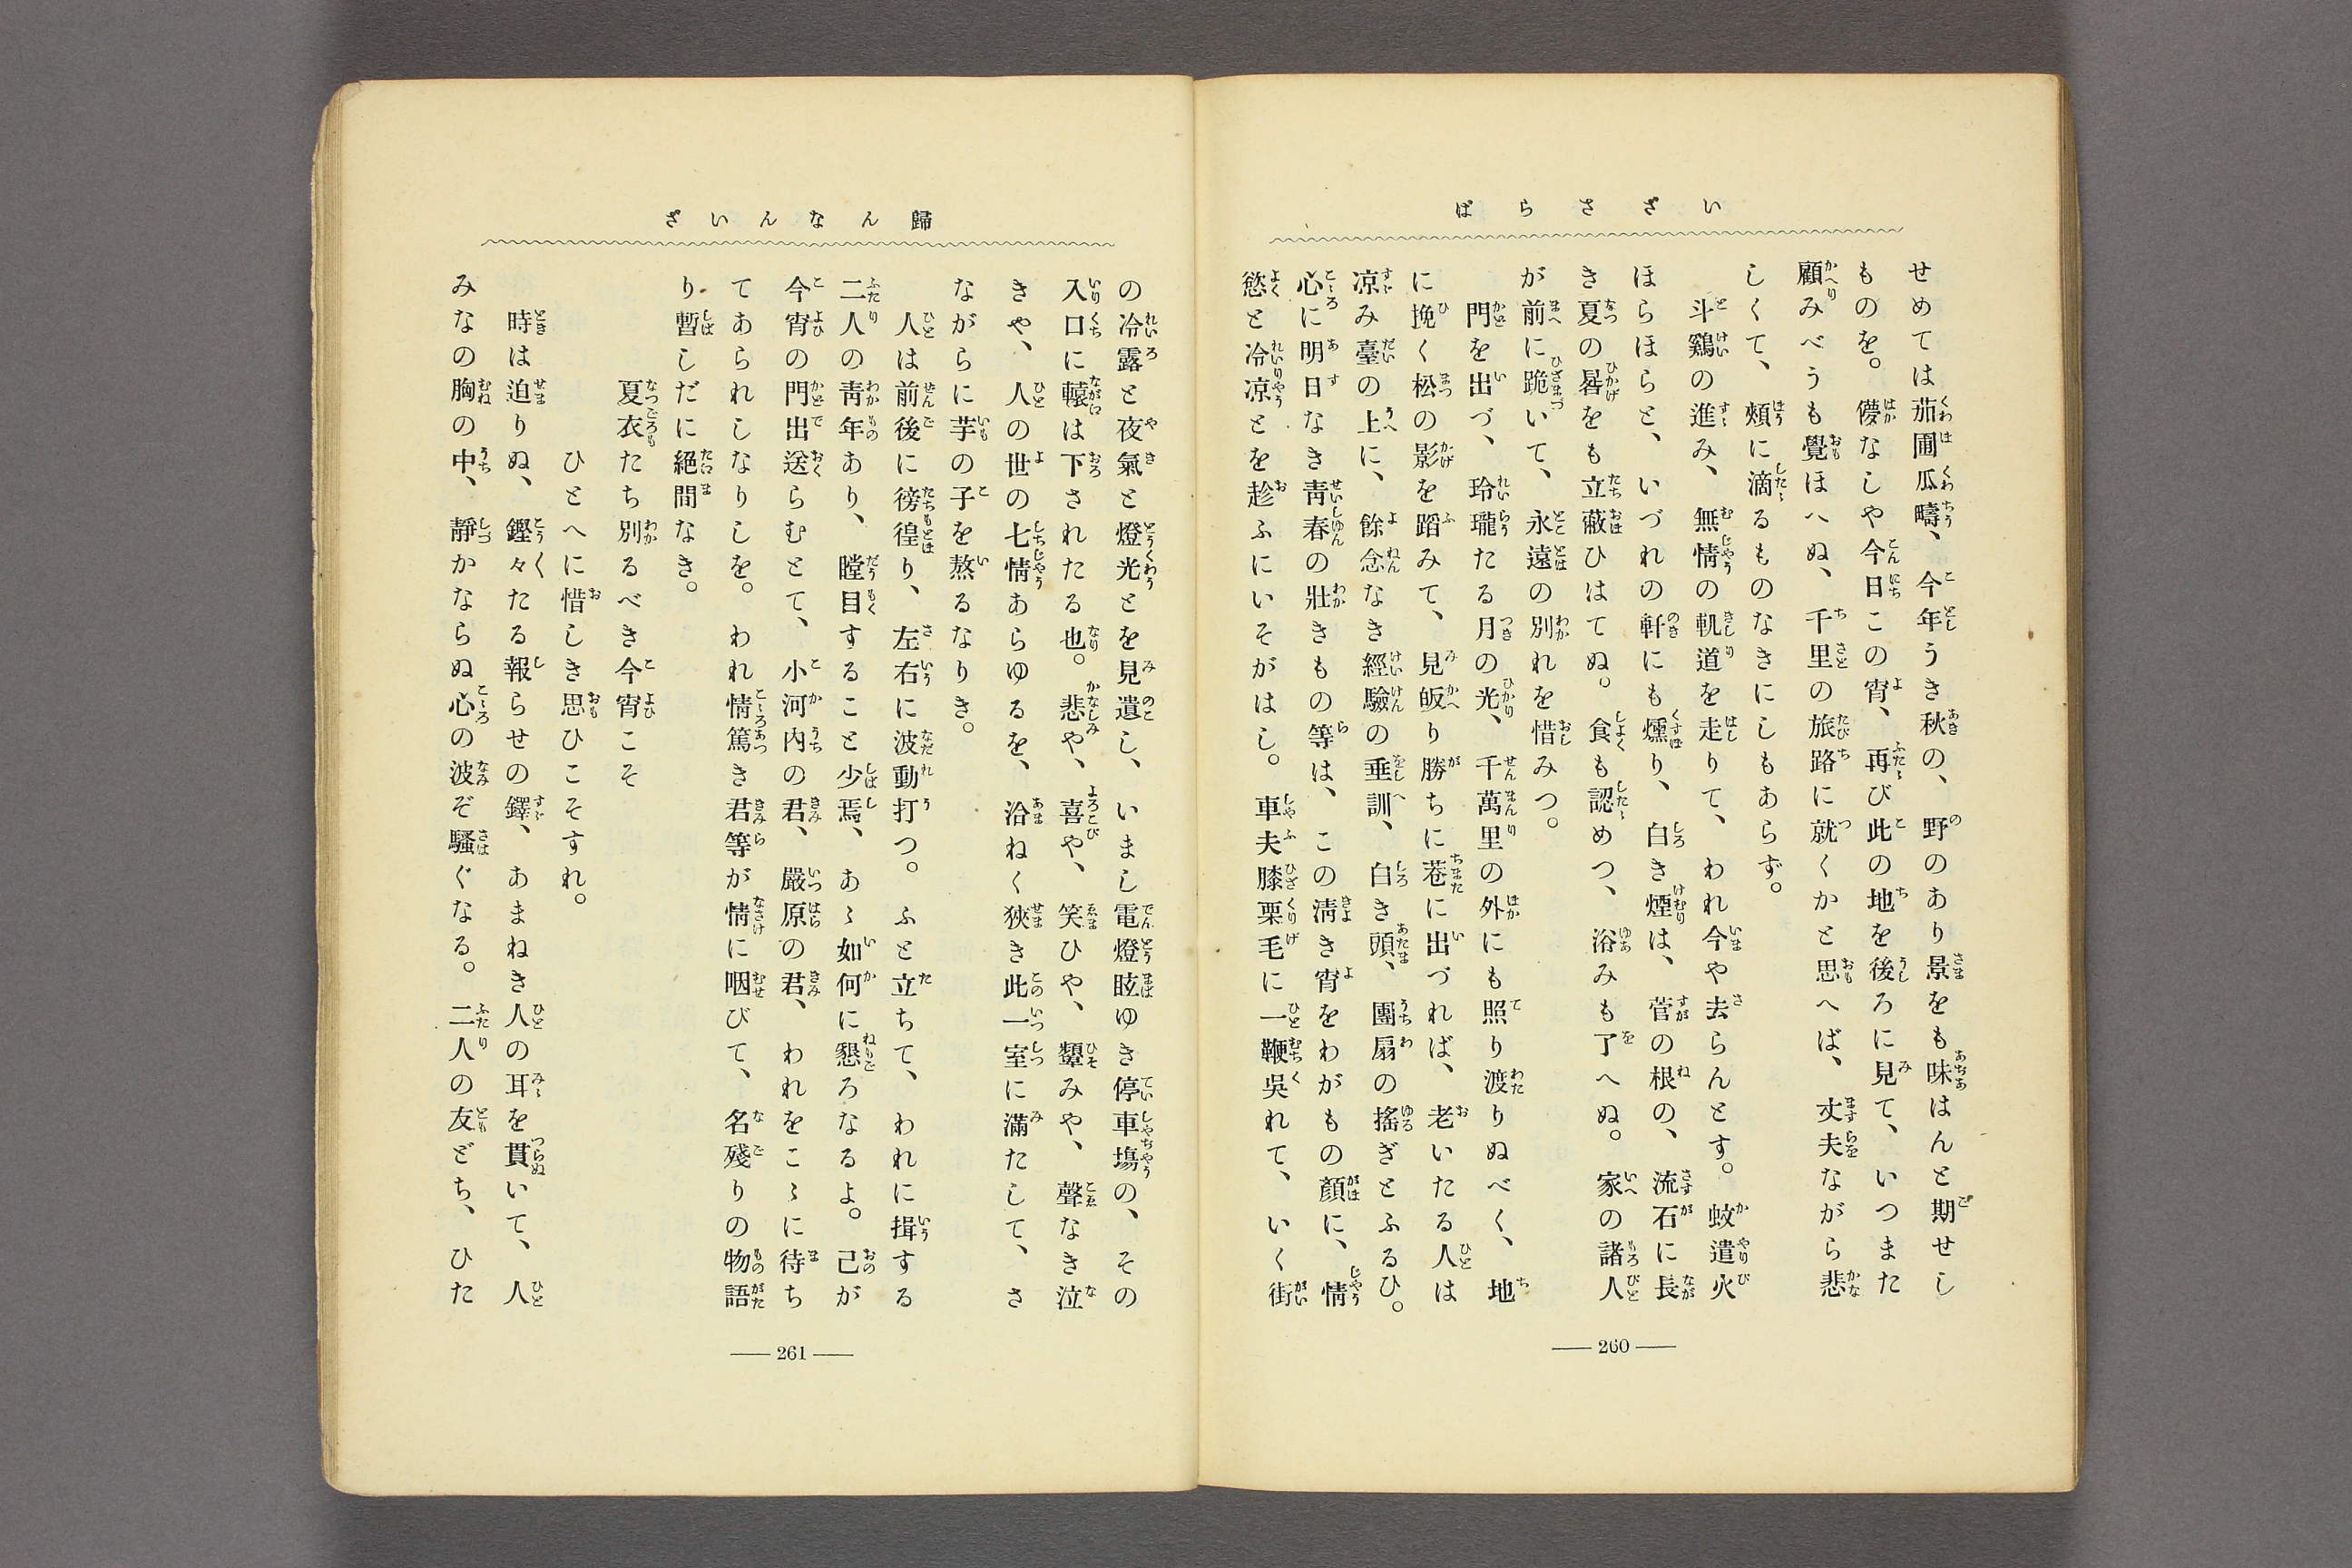 いざさらば
せめては茄圃瓜疇、今年うき秋の、野のあり景をも味はんと期せし
ものを。儚なしや今日この宵、再び此の地を後ろに見て、いつまた
顧みべうも覺ほへぬ、千里の旅路に就くかと思へば、丈夫ながら悲
しくて、頰に滴るものなきにしもあらず。
斗鷄の進み、無情の軌道を走りて、われ今や去らんとす。蚊遣火
ほらほらと、いづれの軒にも燻り、白き煙は、菅の根の、流石に長
き夏の晷をも立蔽ひはてぬ。食も認めつ、浴みも了へぬ。家の諸人
が前に跪いて、永遠の別れを惜みつ。
門を出づ、玲瓏たる月の光、千萬里の外にも照り渡りぬべく、地
に挽く松の影を蹈みて、見皈り勝ちに巷に出づれば、老いたる人は
凉み臺の上に、餘念なき經驗の垂訓、白き頭、團扇の搖ぎとふるひ。
心に明日なき靑春の壯きもの等は、この淸き宵をわがもの顏に、情
慾と冷凉とを趁ふにいそがはし。車夫膝栗毛に一鞭吳れて、いく街
— 260 —
歸んなんいざ
の冷露と夜氣と燈光とを見遺し、いまし電燈眩ゆき停車塲の、その
入口に轅は下されたる也。悲や、喜や、笑ひや、顰みや、聲なき泣
きや、人の世の七情あらゆるを、洽ねく狹き此一室に滿たして、さ
ながらに芋の子を熬るなりき。
人は前後に徬徨り、左右に波動打つ。ふと立ちて、われに揖する
二人の靑年あり、瞠目すること少焉、あゝ如何に懇ろなるよ。己が
今宵の門出送らむとて、小河内の君、嚴原の君、われをこゝに待ち
てあられしなりしを。われ情篤き君等が情に咽びて、名殘りの物語
り暫しだに絕間なき。
夏衣たち別るべき今宵こそ
ひとへに惜しき思ひこそすれ。
時は迫りぬ、鏗々たる報らせの鐸、あまねき人の耳を貫いて、人
みなの胸の中、靜かならぬ心の波ぞ騷ぐなる。二人の友どち、ひた
— 261 —